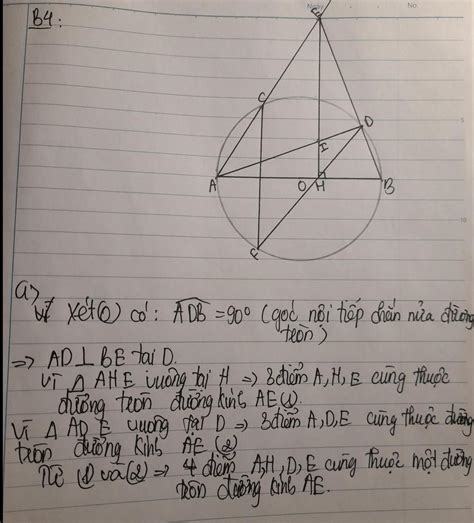 Ngày No.
B4:
E
C
D
I
A O H B
F
5
10
a>
Vì Xét (O) có: ADB = 90° (góc nội tiếp chắn nửa đường
tròn)
=> AD ⊥ BE tại D.
Vì Δ AHE vuông tại H => 3 điểm A, H, E cùng thuộc
đường tròn đường kính AE (1)
Vì Δ ADE vuông tại D => 3 điểm A, D, E cùng thuộc đường
tròn đường kính AE (2)
Từ (1) và (2) => 4 điểm A, H, D, E cùng thuộc một đường
tròn đường kính AE.